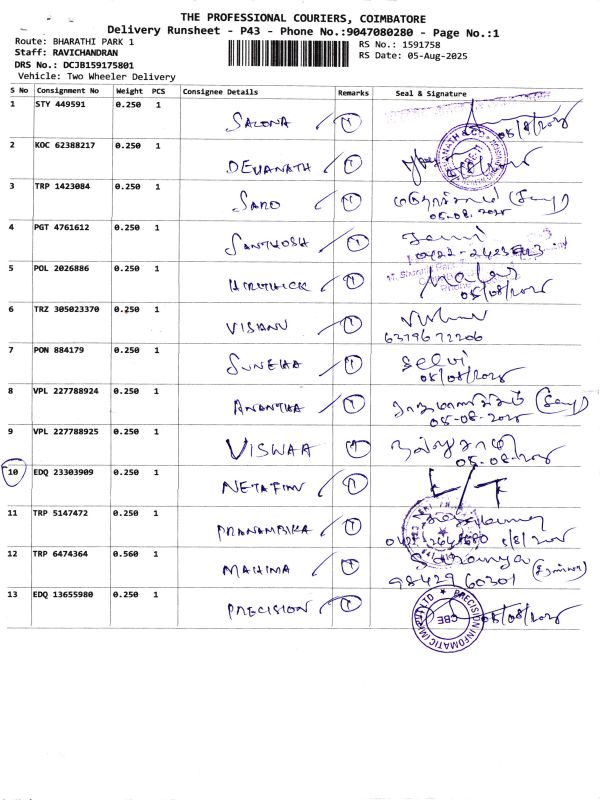 THE PROFESSIONAL COURIERS, COIMBATORE
Delivery Runsheet - P43 - Phone No.:9047080280 - Page No.:1
Route: BHARATHI PARK 1
RS No.: 1591758
Staff: RAVICHANDRAN
RS Date: 05-Aug-2025
DRS No.: DCJB159175801
Vehicle: Two Wheeler Delivery
S No Consignment No Weight PCS Consignee Details Remarks Seal & Signature
1 STY 449591 0.250 1 SALONA 1 05/8/2025
2 KOC 62388217 0.250 1 DEVANATH 1
3 TRP 1423084 0.250 1 SARO 1
05-08-2025
4 PGT 4761612 0.250 1 SANTHOSH 1
0422-2423
5 POL 2026886 0.250 1 HIRTHICK 1
05/08/2025
6 TRZ 305023370 0.250 1 VISHNU 1
6379672206
7 PON 884179 0.250 1 SUNEHA 1 Selvi
05/08/2025
8 VPL 227788924 0.250 1 ANANTHA 1
05-08-2025
9 VPL 227788925 0.250 1 VISWAA 1
05-08-2025
10 EDQ 23303909 0.250 1 NETAFIM 1 L/T
11 TRP 5147472 0.250 1 PRANAMBIKA 1
5/8/2025
12 TRP 6474364 0.560 1 MAHIMA 1
9842960301
13 EDQ 13655980 0.250 1 PRECISION 1 05/08/2025
PRECISION INFOMATIC (M) PVT LTD
CBE